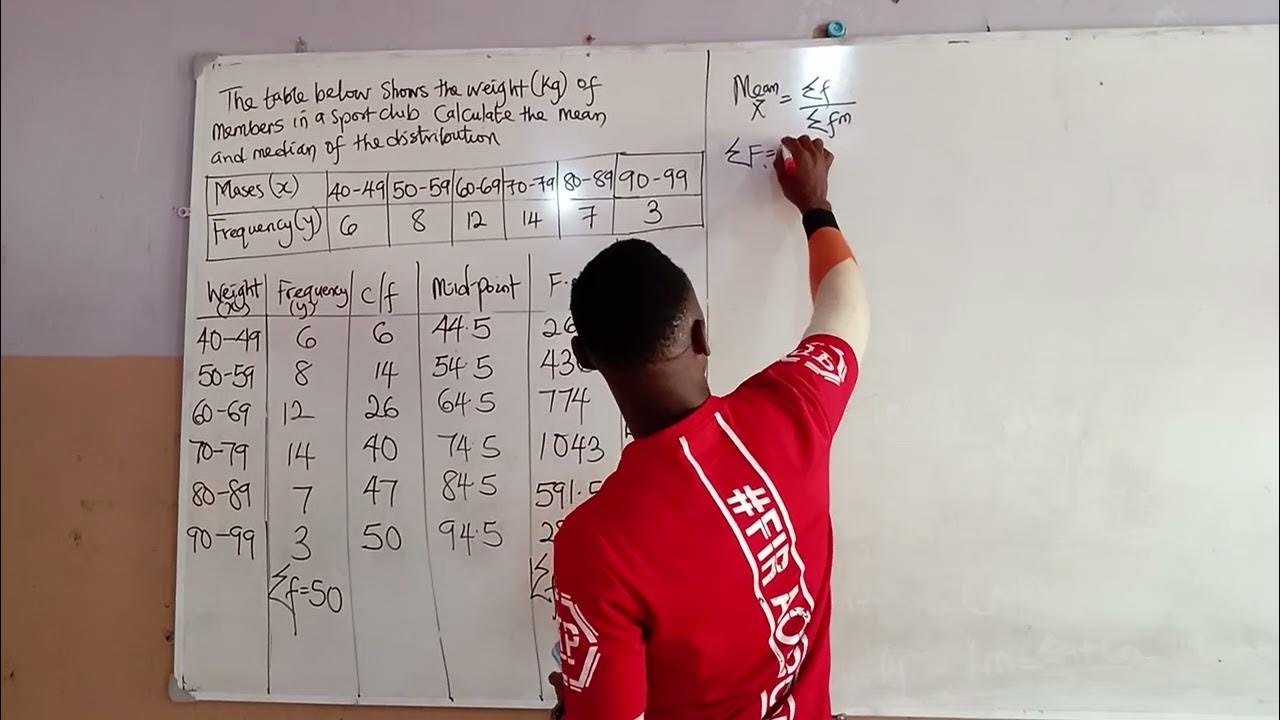 The table below shows the weight (Kg) of
Members in a sport club. Calculate the mean
and median of the disstribution
Mases (x) 40-49 50-59 60-69 70-79 80-89 90-99
Frequency(y) 6 8 12 14 7 3
Weight (x) Frequency (y) c/f Mid-point F.
40-49 6 6 44.5 26
50-59 8 14 54.5 43
60-69 12 26 64.5 774
70-79 14 40 74.5 1043
80-89 7 47 84.5 591.5
90-99 3 50 94.5 28
Σf=50 Σ
Mean x̄ = Σf / Σfm
ΣF=
#FIR